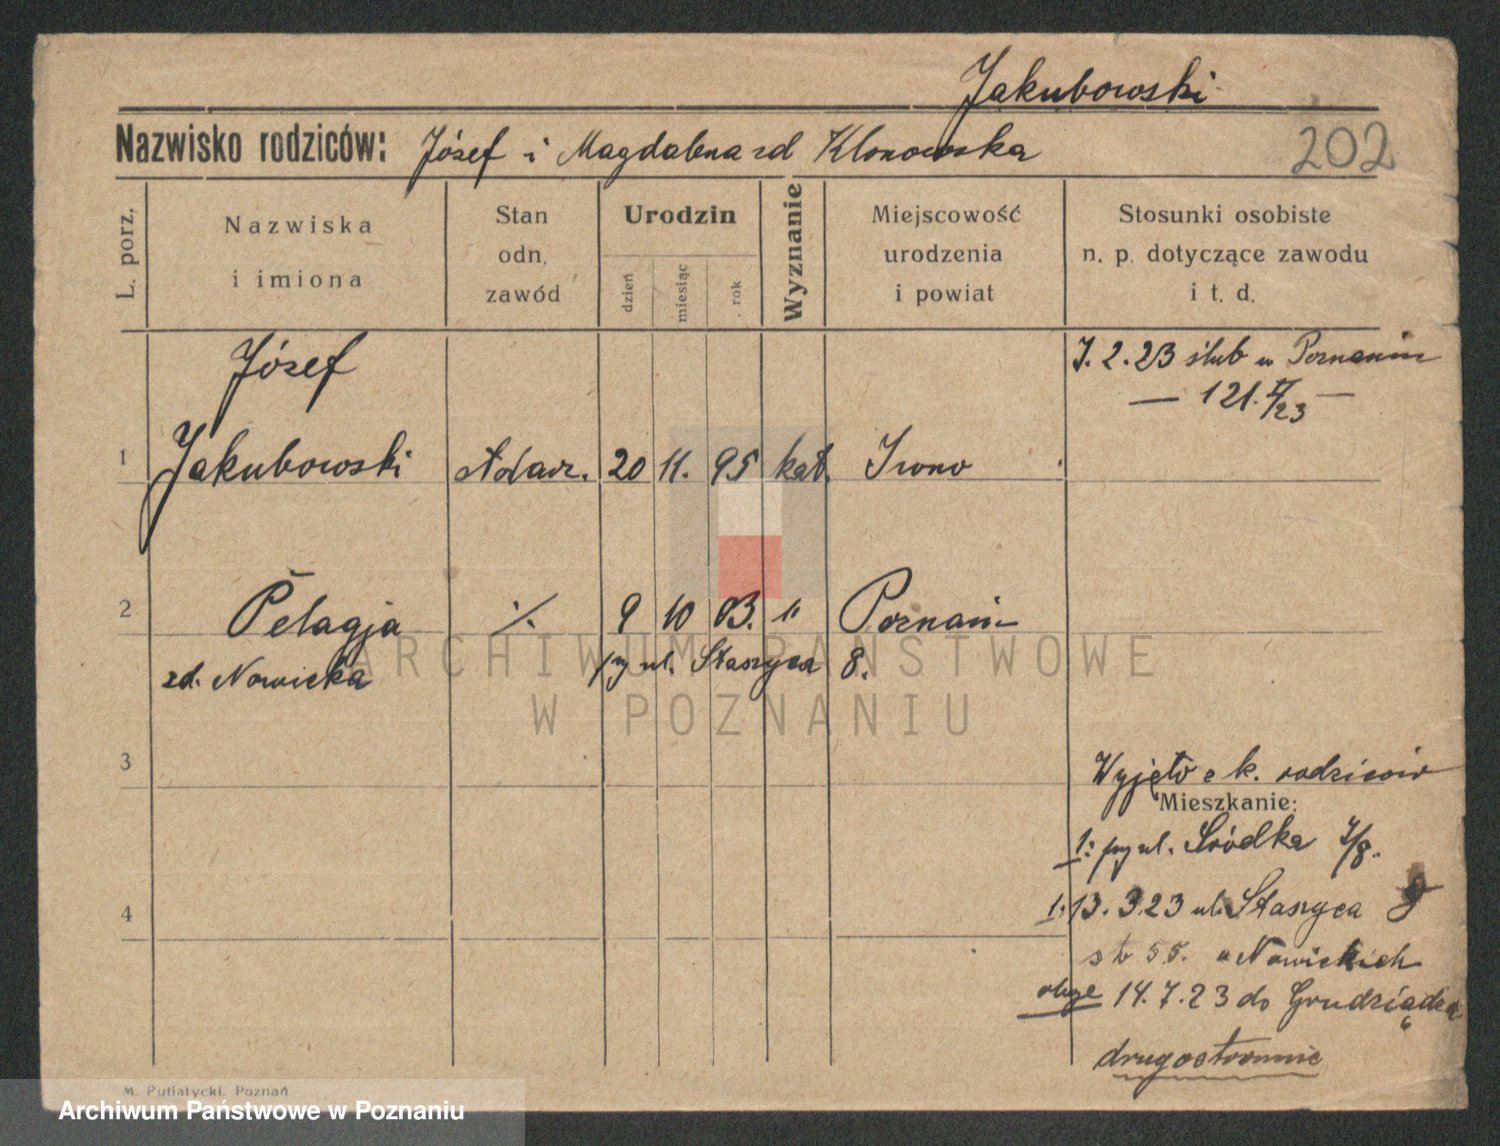 Jakubowski
Nazwisko rodziców: Józef i Magdalena zd Klonowska
202
L. porz.
Nazwiska
i imiona
Stan
odn.
zawód
Urodzin
dzień
miesiąc
rok
Wyznanie
Miejscowość
urodzenia
i powiat
Stosunki osobiste
n. p. dotyczące zawodu
i t. d.
Józef
7.2.23 ślub w Poznaniu
— 121. II/23 —
1 Jakubowski 20 11. 95 kat. Iwno
2 Pelagja ./. 9 10 03. " Poznań
zd. Nowicka py ul. Staszyca 8.
ARCHIWUM PAŃSTWOWE
W POZNANIU
3
Wyjęto z k. rodziców
Mieszkanie:
1: py ul. Śródka 7/8.
4
1: 13.3.23 ul. Staszyca
st 55. u Nowickich
14.7.23 do Grudziądza
drugostronnie
M. Putiatycki, Poznań
Archiwum Państwowe w Poznaniu